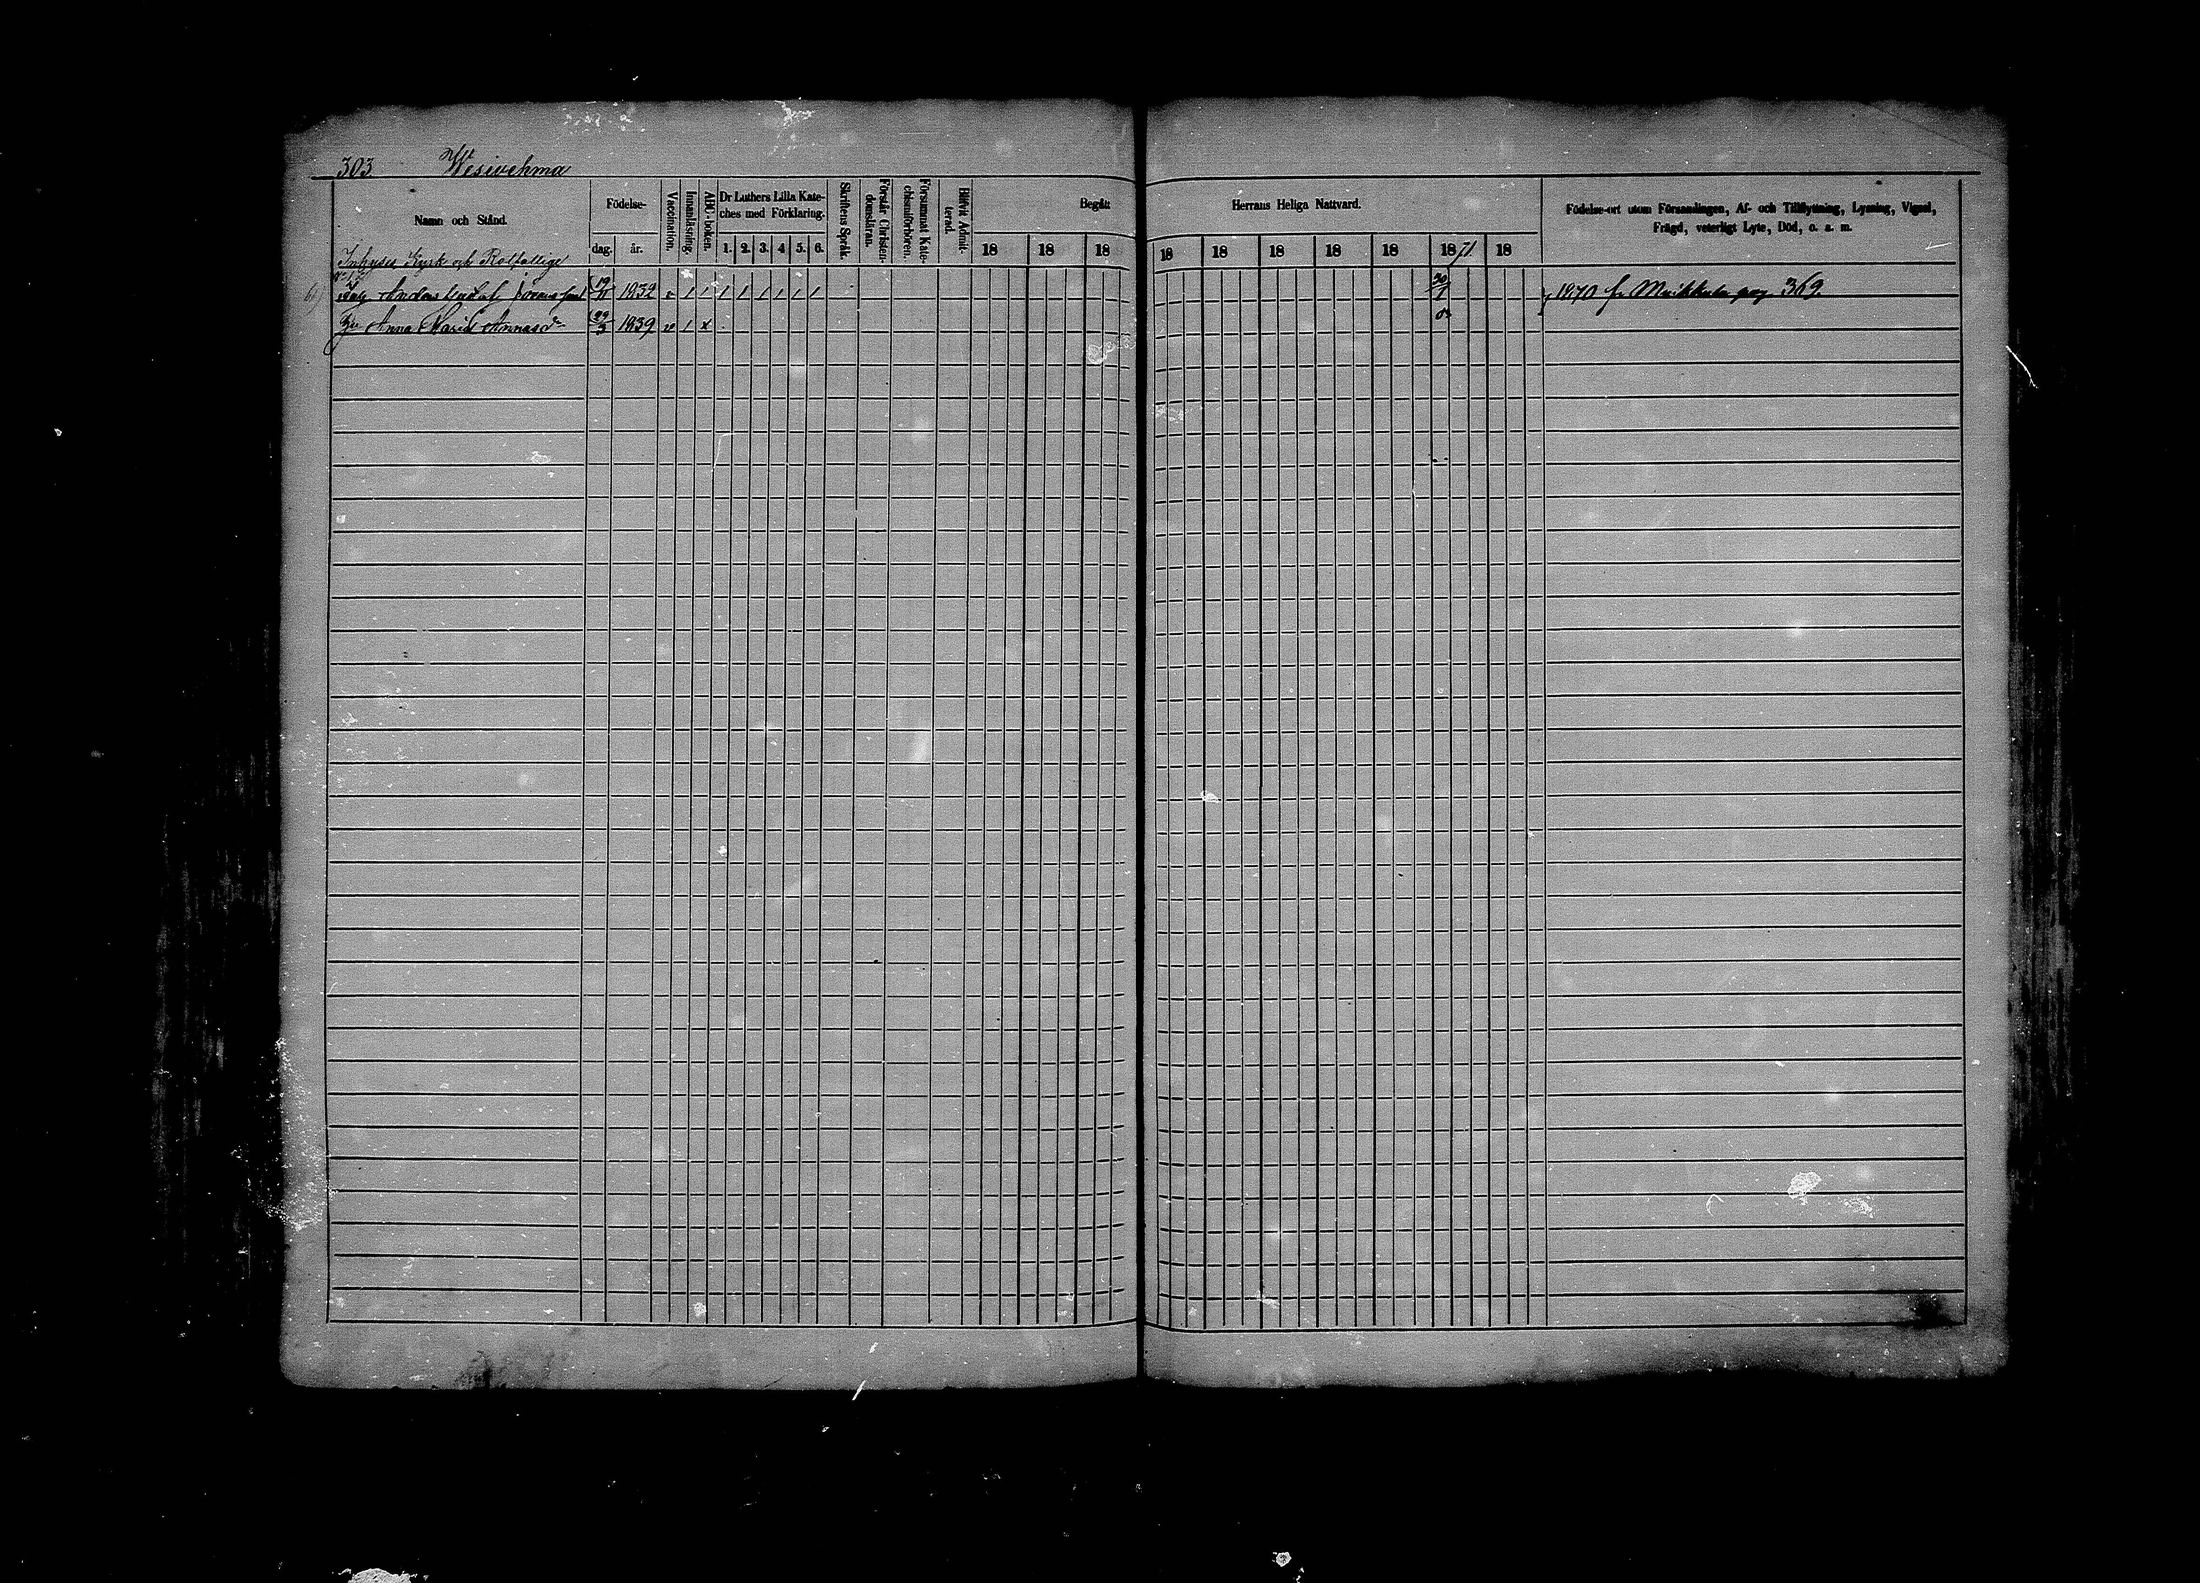 303 Wesivehma
Namn och Stånd.
Födelse-
dag. år.
Vaccination.
Innanläsning.
ABC-boken.
Dr Luthers Lilla Kate-
ches med Förklaring.
1. 2. 3. 4. 5. 6.
Skriftens Språk.
Förstår Christen-
domsläran.
Försummat Kate-
chismiförhören.
Blifvit Admit-
terad.
Begått
18 18 18
Herrans Heliga Nattvard.
18 18 18 18 18 1871 18
Födelse-ort utom Församlingen, Af- och Tillflyttning, Lysning, Vigsel,
Frägd, veterligt Lyte, Död, o. a. m.
Inhyses och
Anders 19/11 1832 v 1 1 1 1 1 1 1 1 30/1 1870 fr pag 369.
Anna Maria 29/3 1839 v 1 x